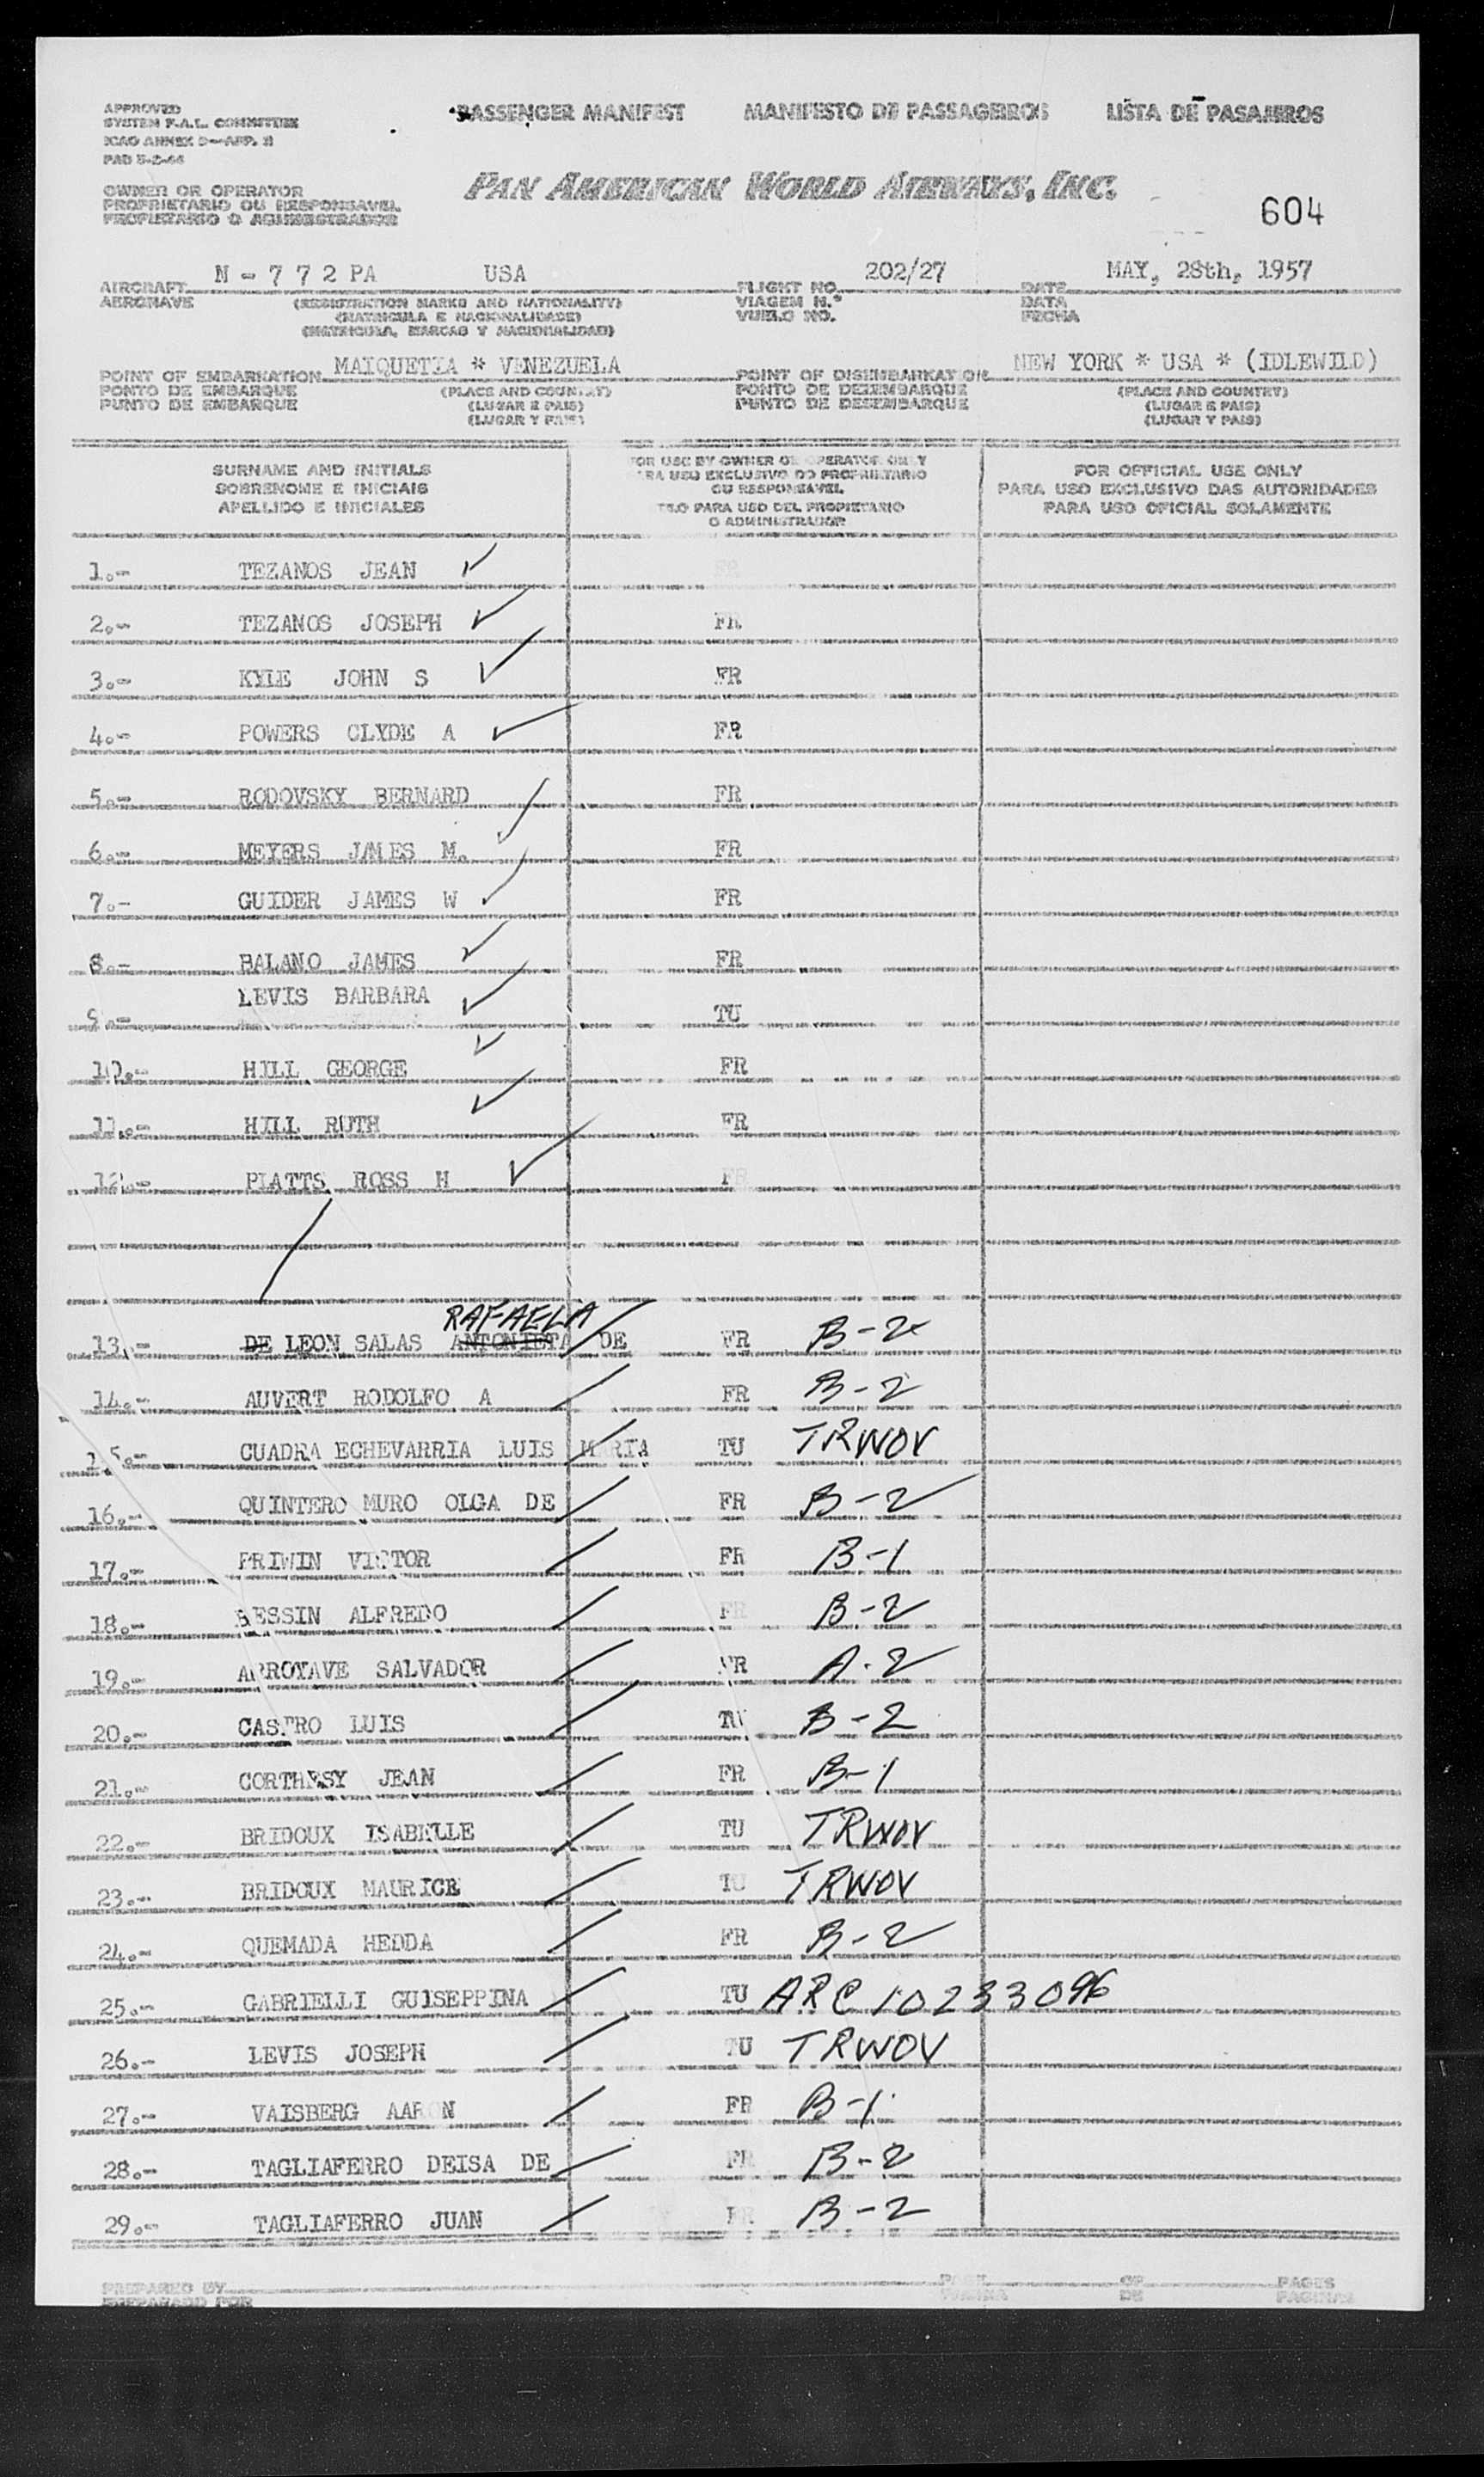 APPROVED
SYSTEM F.A.L. COMMITTEE
ICAO ANNEX 9—APP. 3
PAD 5-2-44
PASSENGER MANIFEST MANIFESTO DE PASSAGEIROS LISTA DE PASAJEROS
PAN AMERICAN WORLD AIRWAYS, INC.
OWNER OR OPERATOR
PROPRIETARIO OU RESPONSAVEL
PROPIETARIO O ADMINISTRADOR
604
AIRCRAFT N - 7 7 2 PA USA FLIGHT NO. 202/27 DATE MAY, 28th, 1957
AERONAVE (REGISTRATION MARKS AND NATIONALITY) VIAGEM N.º DATA
(MATRICULA E NACIONALIDADE) VUELO NO. FECHA
(MATRICULA, MARCAS Y NACIONALIDAD)
POINT OF EMBARKATION MAIQUETIA * VENEZUELA POINT OF DISEMBARKATION NEW YORK * USA * (IDLEWILD)
PONTO DE EMBARQUE (PLACE AND COUNTRY) PONTO DE DESEMBARQUE (PLACE AND COUNTRY)
PUNTO DE EMBARQUE (LUGAR E PAIS) PUNTO DE DESEMBARQUE (LUGAR E PAIS)
(LUGAR Y PAIS) (LUGAR Y PAIS)
SURNAME AND INITIALS
SOBRENOME E INICIAIS
APELLIDO E INICIALES
FOR USE BY OWNER OR OPERATOR ONLY
PARA USO EXCLUSIVO DO PROPRIETARIO
OU RESPONSAVEL
SOLO PARA USO DEL PROPIETARIO
O ADMINISTRADOR
FOR OFFICIAL USE ONLY
PARA USO EXCLUSIVO DAS AUTORIDADES
PARA USO OFICIAL SOLAMENTE
1.- TEZANOS JEAN FR
2.- TEZANOS JOSEPH FR
3.- KYLE JOHN S FR
4.- POWERS CLYDE A FR
5.- RODOVSKY BERNARD FR
6.- MEYERS JAMES M. FR
7.- GUIDER JAMES W FR
8.- BALANO JAMES FR
9.- LEVIS BARBARA TU
10.- HILL GEORGE FR
11.- HILL RUTH FR
12.- PLATTS ROSS H FR
RAFAELA
13.- DE LEON SALAS ANTONIETA DE FR B-2
14.- AUVERT RODOLFO A FR B-2
15.- CUADRA ECHEVARRIA LUIS MARIA TU TRWOV
16.- QUINTERO MURO OLGA DE FR B-2
17.- PRIWIN VICTOR FR B-1
18.- BESSIN ALFREDO FR B-2
19.- ARROYAVE SALVADOR FR A-2
20.- CASTRO LUIS TU B-2
21.- CORTHESY JEAN FR B-1
22.- BRIDOUX ISABELLE TU TRWOV
23.- BRIDOUX MAURICE TU TRWOV
24.- QUEMADA HEDDA FR B-2
25.- GABRIELLI GUISEPPINA TU ARC 10233096
26.- LEVIS JOSEPH TU TRWOV
27.- VAISBERG AARON FR B-1
28.- TAGLIAFERRO DEISA DE FR B-2
29.- TAGLIAFERRO JUAN FR B-2
PREPARED BY PAGE OF PAGES
PREPARADO POR PAGINA DE PAGINAS